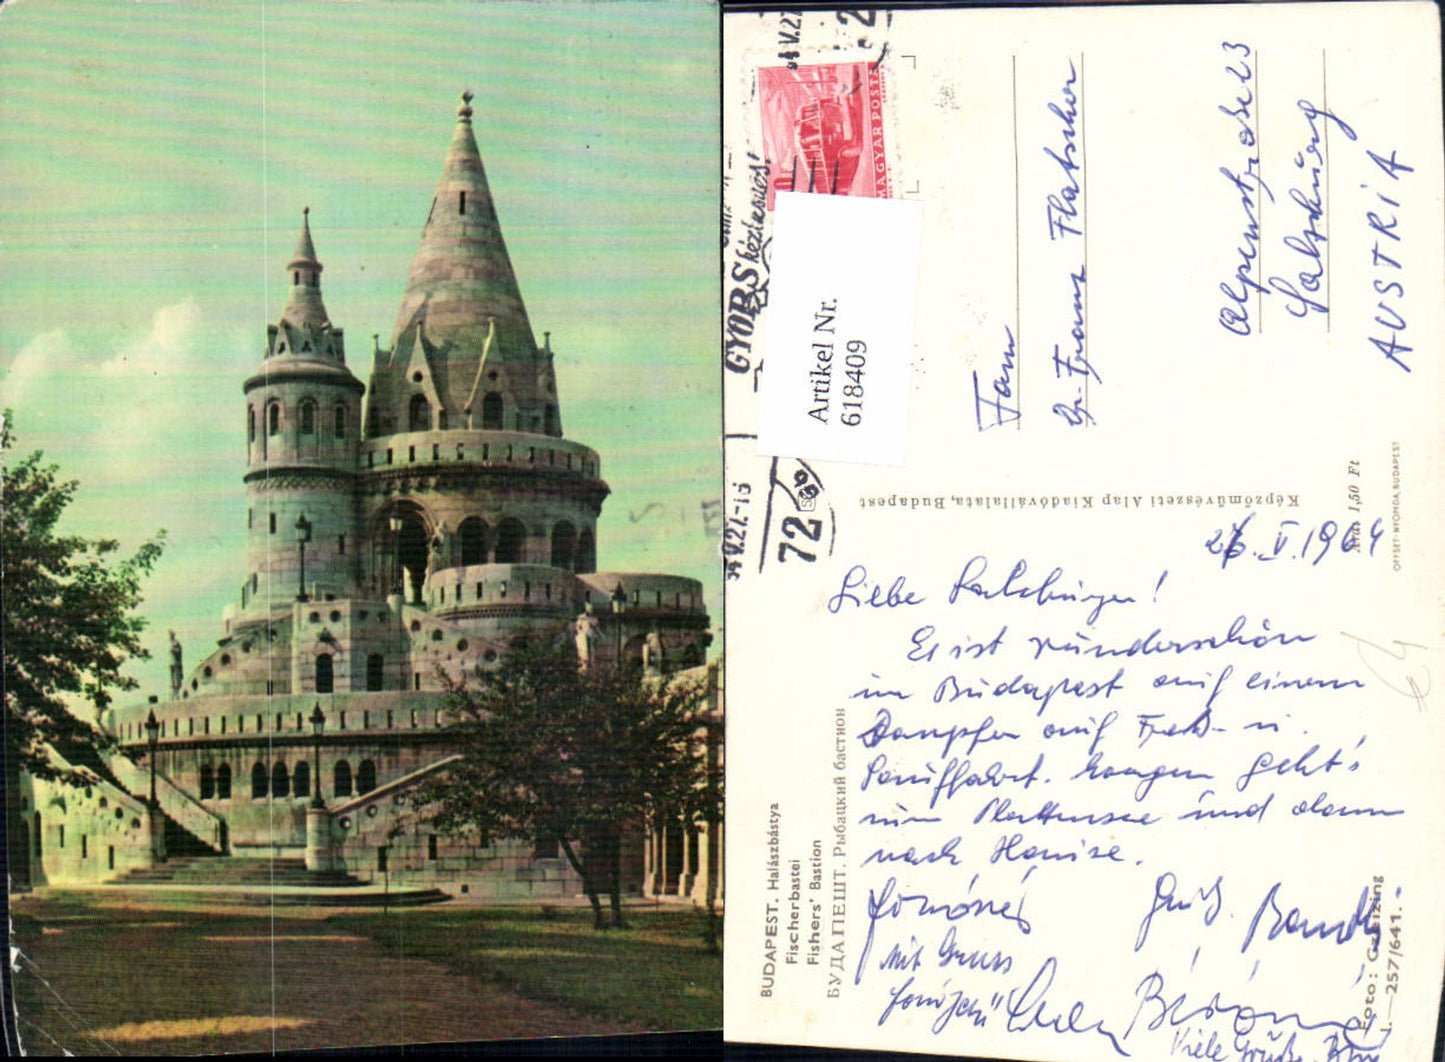 MAGYAR POSTA
GYORS
kézbesítés!
72
V.27.-16
V.27
Artikel Nr.
618409
Frau
Franz Flatscher
Alpenstrasse 23
Salzburg
AUSTRIA
Képzőművészeti Alap Kiadóvállalata, Budapest
Ára 1,50 Ft
OFFSET-NYOMDA, BUDAPEST
26.V.1964
Liebe Salzburger!
Es ist wunderschön
in Budapest auf einem
Dampfer auf Freß- u.
Sauffahrt. Morgen geht's
zum Plattensee und dann
nach Hause.
mit Gruss
Viele Grüße
BUDAPEST. Halászbástya
Fischerbastei
Fishers' Bastion
БУДАПЕШТ. Рыбацкий бастион
Foto:
257/641.-